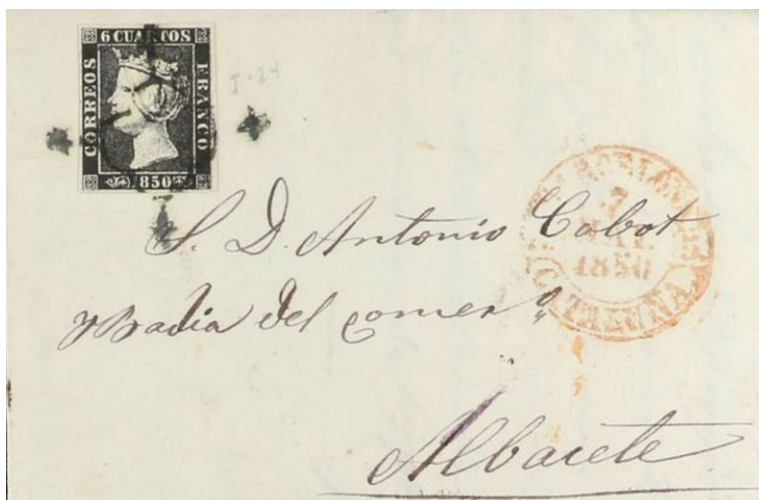 6 CUARTOS
CORREOS
FRANCO
1850
T-24
BARCELONA
7
MAY.
1850
CATALUÑA
S. D. Antonio Cabot
y Badia del comer.º
Albacete